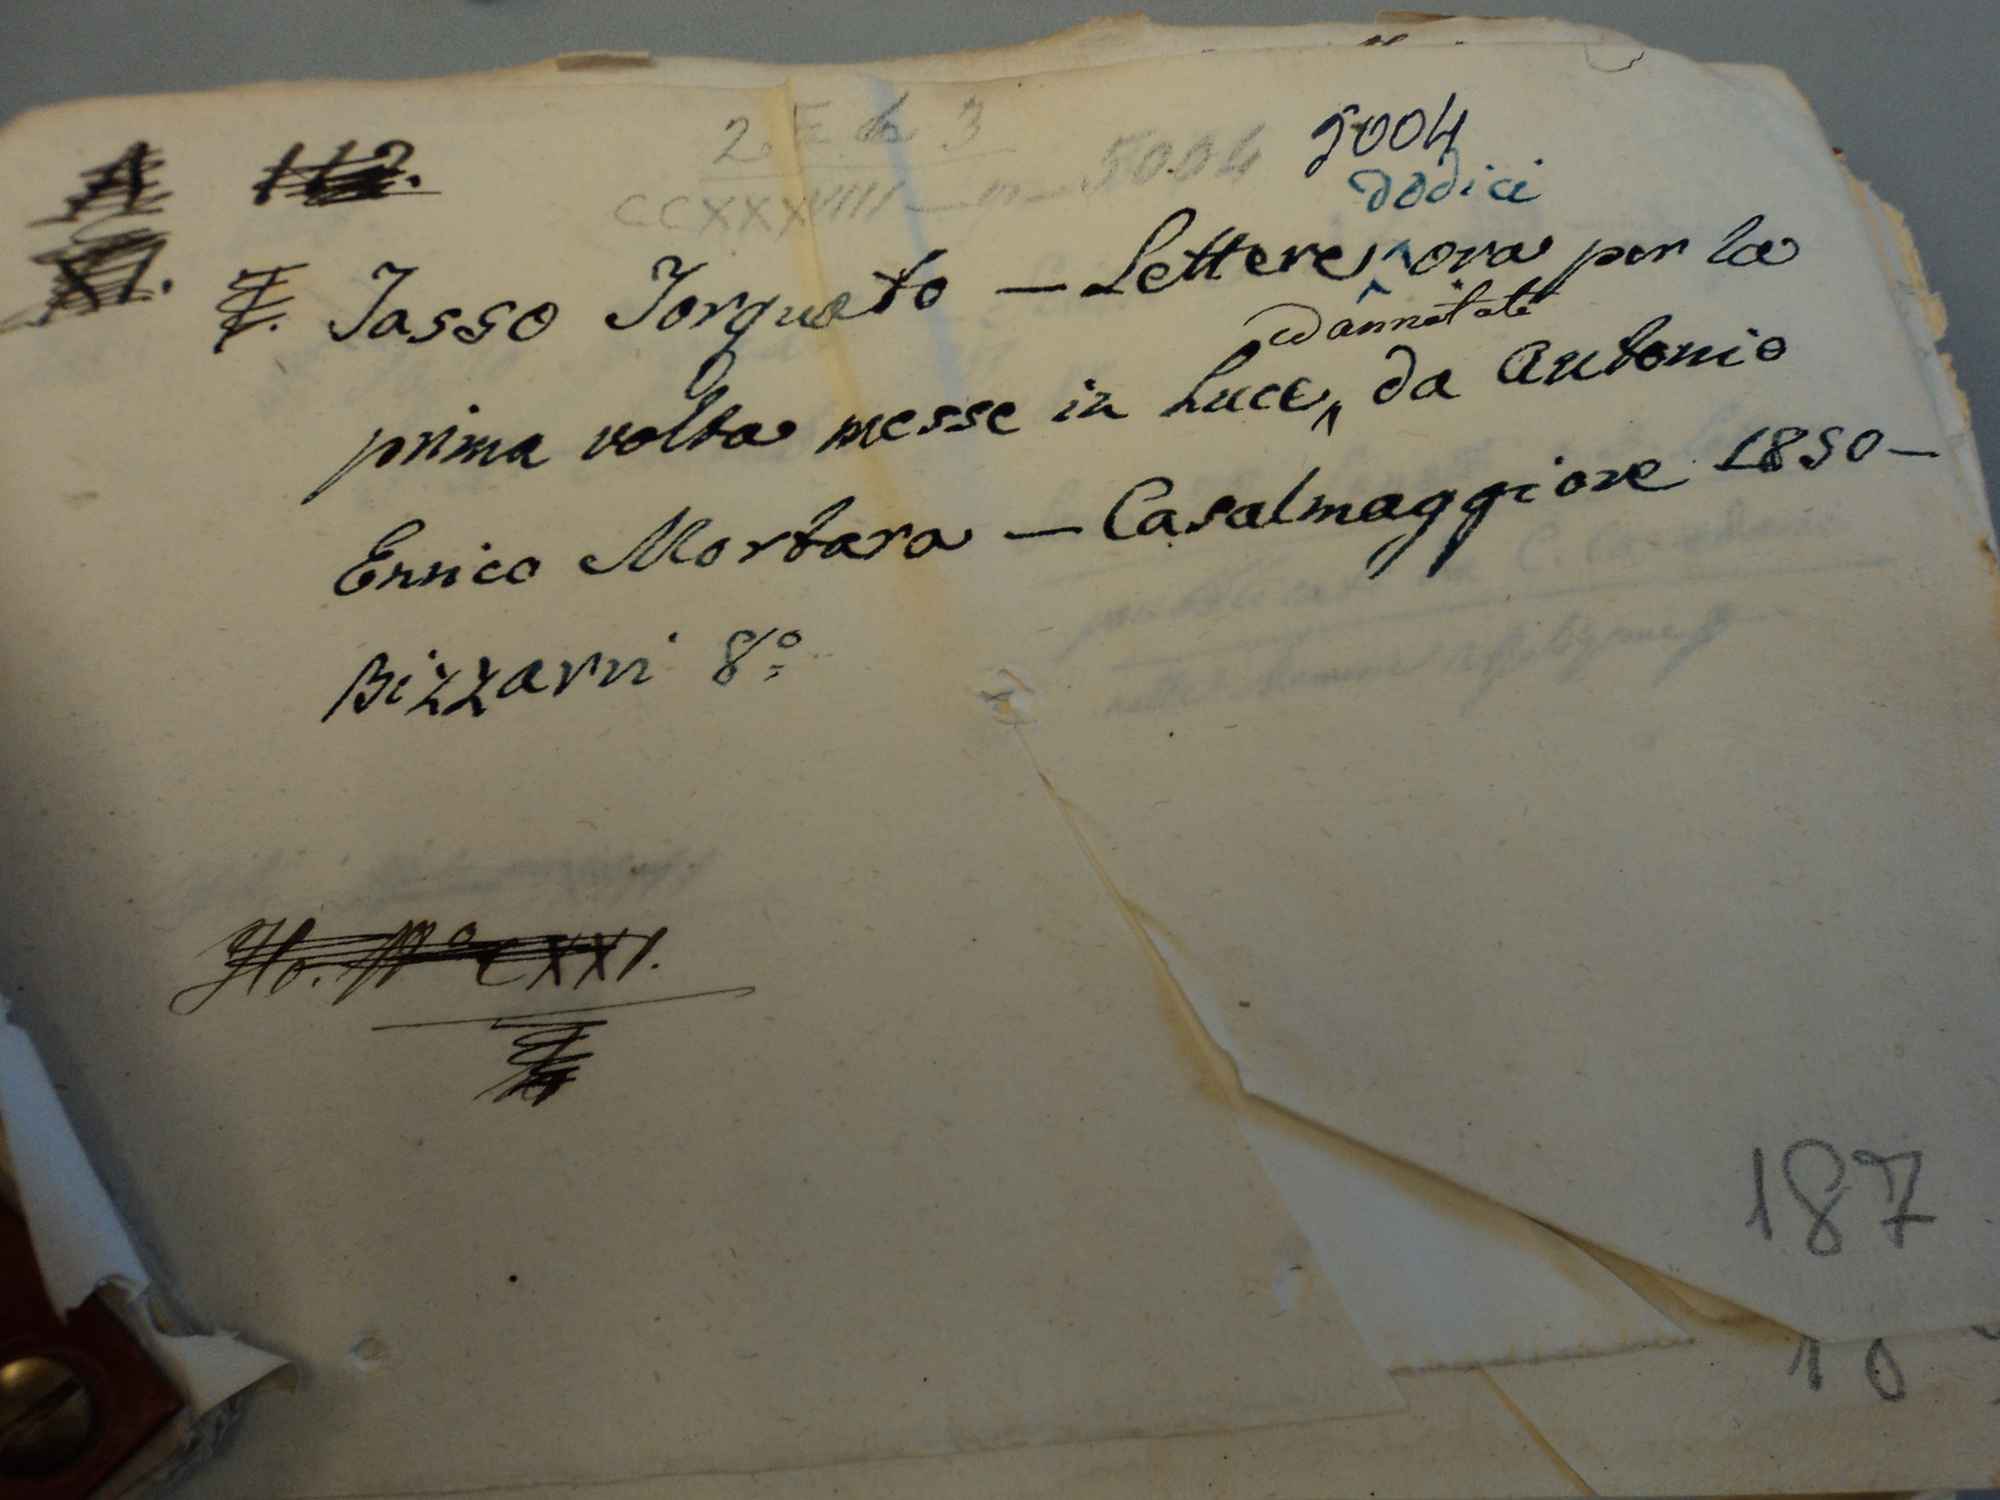 A 112.
2 E b 3
CCXXXVIII — n — 5004
5004
XI.
dodici
E. Tasso Torquato — Lettere, ora per la
ed annotate
prima volta messe in luce, da Antonio
Enrico Mortara — Casalmaggiore 1850 —
Bizzarri 8°
No. CXXI.
187
10